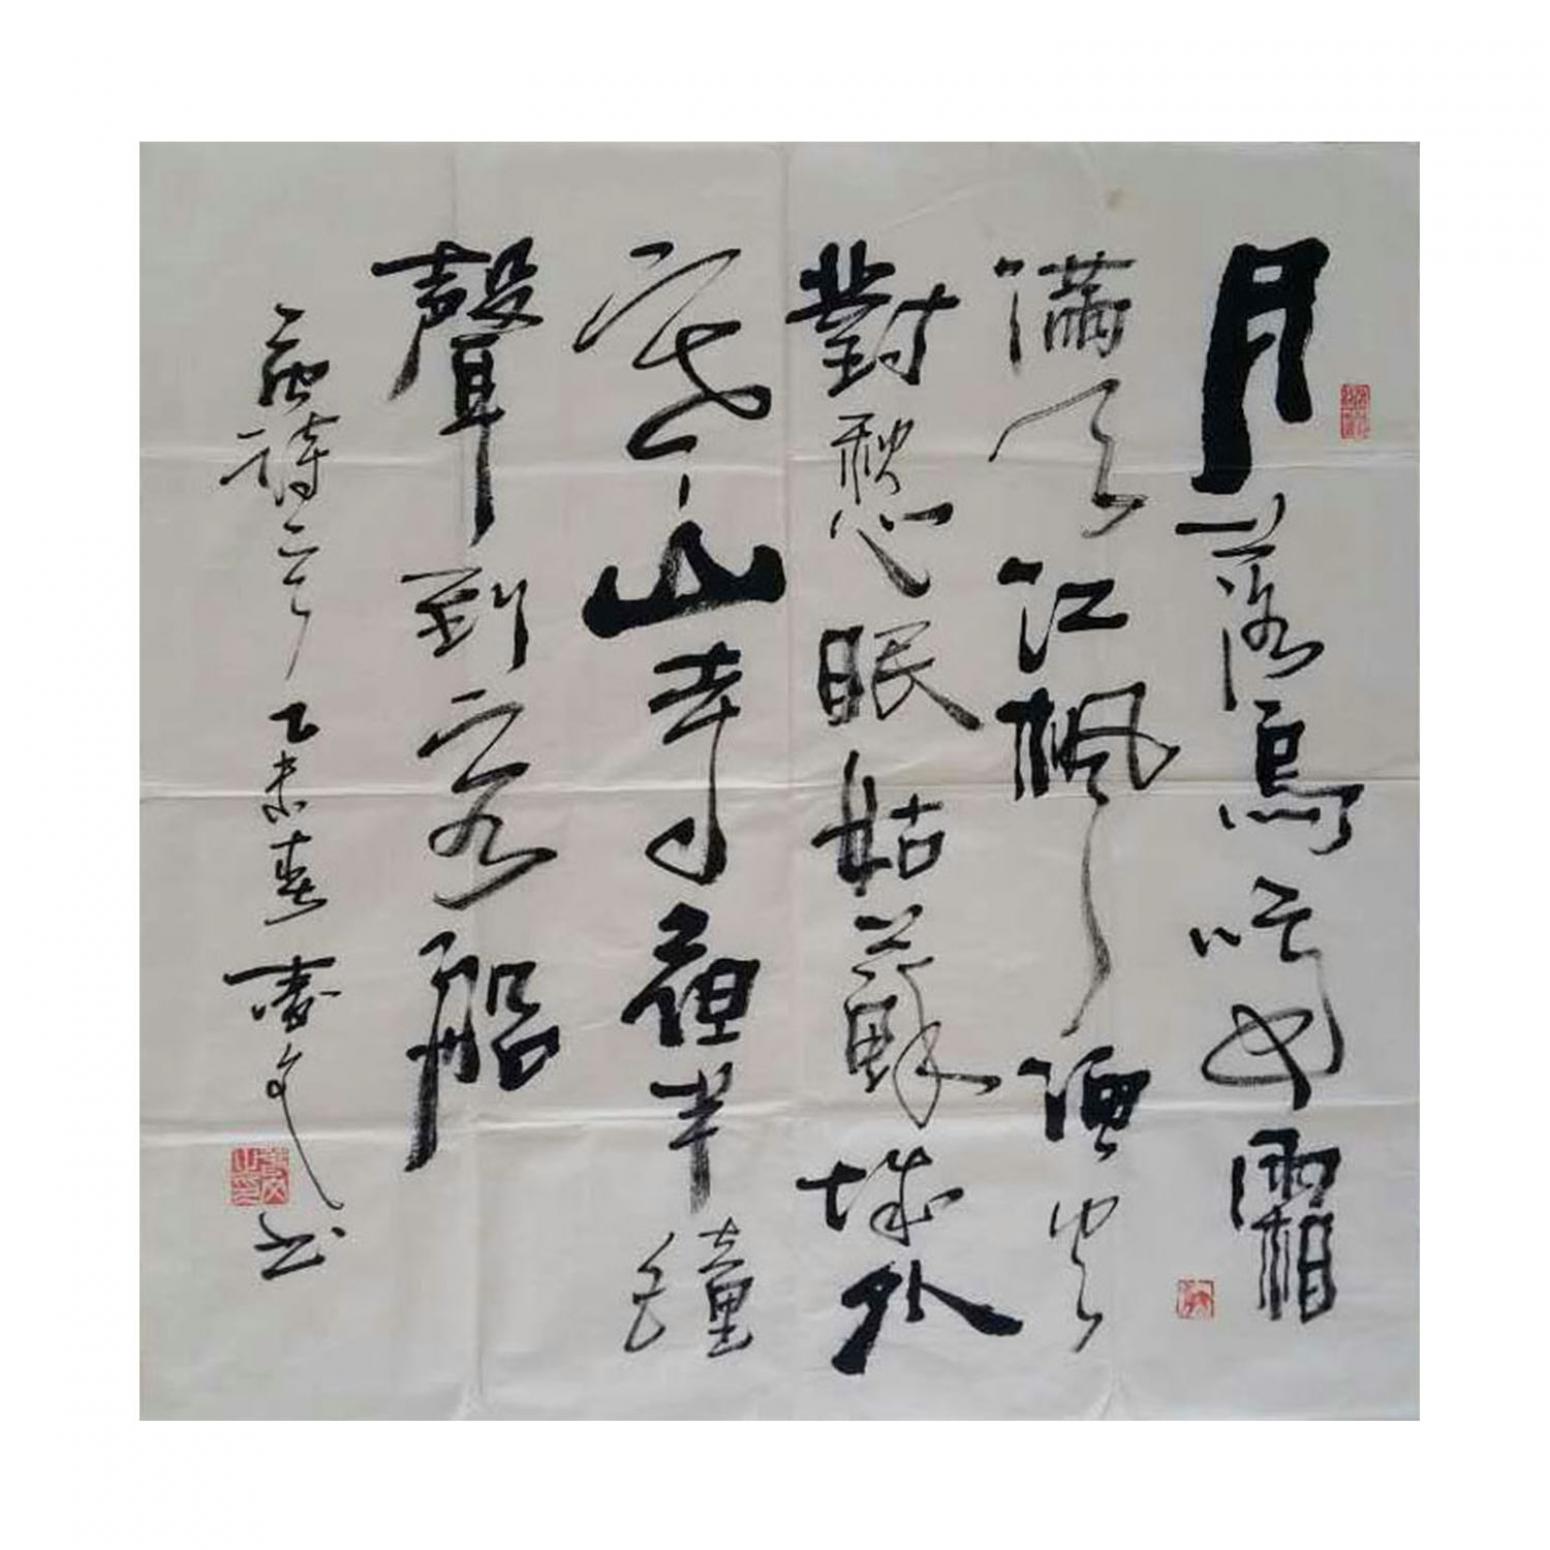 月落烏啼霜
滿天江楓漁火
對愁眠姑蘇城外
寒山寺夜半鐘
聲到客船
唐詩一首 乙未春 書